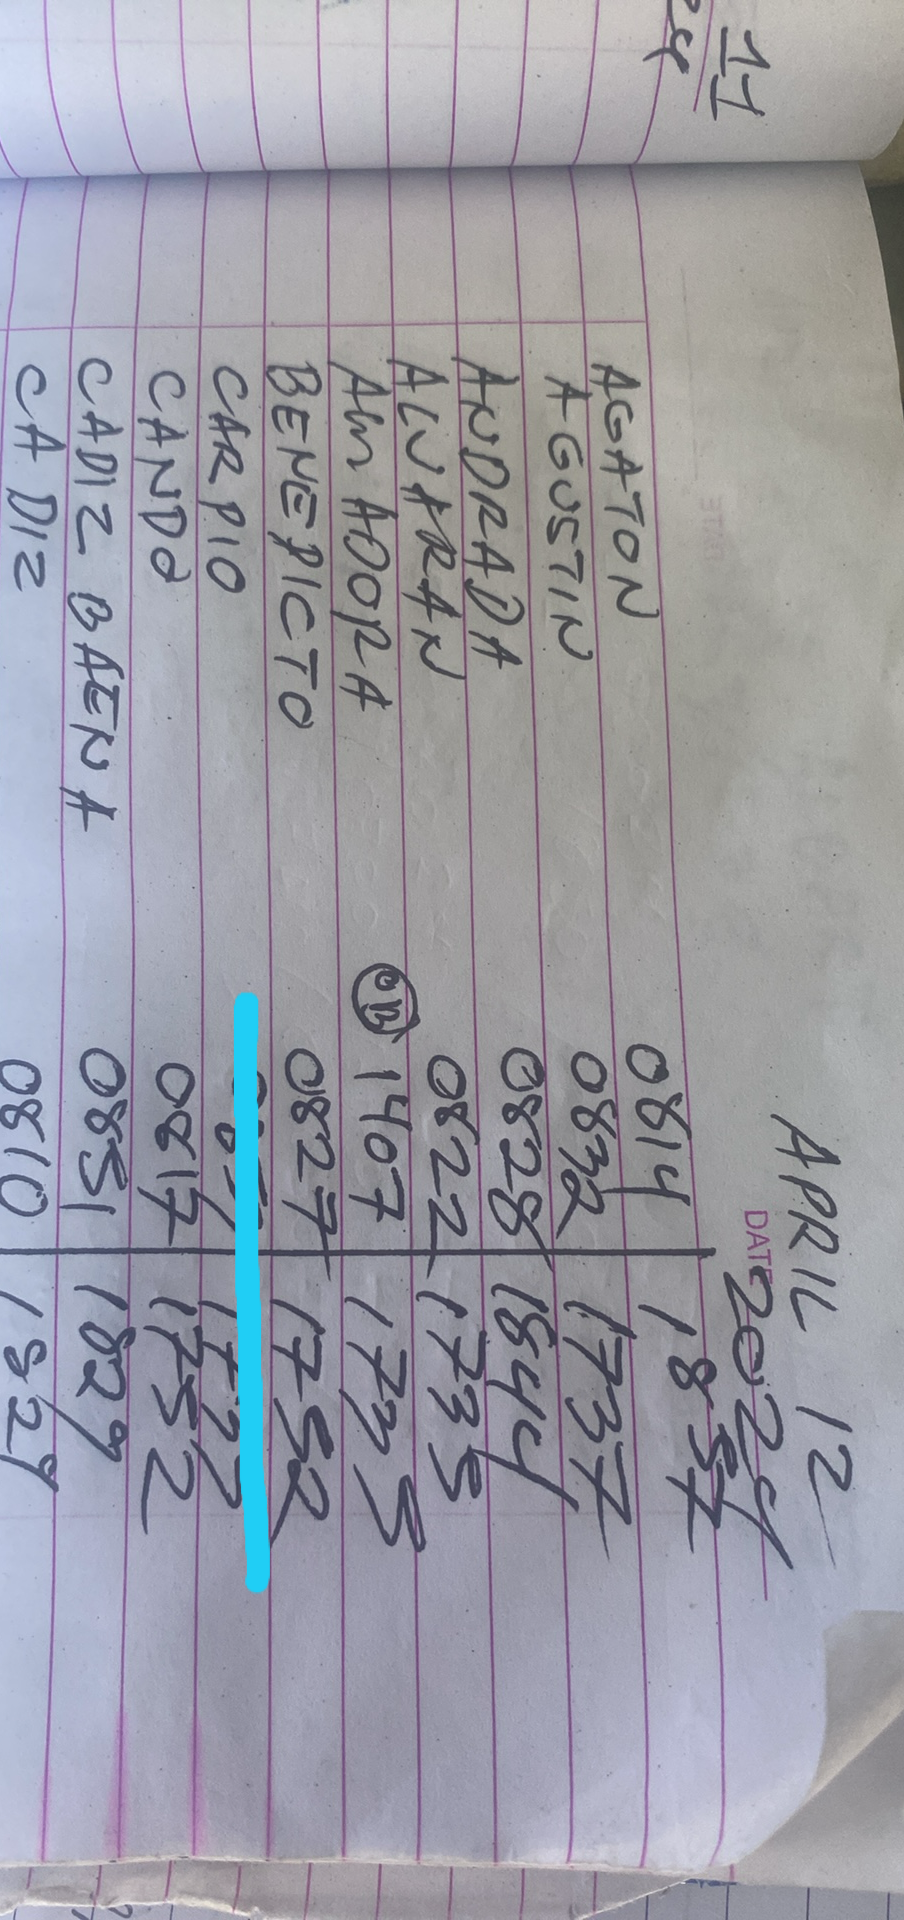 11
APRIL 12
DATE 2024
AGATON 0814 1857
AGUSTIN 0832 1737
ANDRADA 0828 1844
ALVARAN 0822 1735
AMADORA OB 1407 1735
BENEDICTO 0827 1752
CARPIO
CANDO 0817 1752
CADIZ BAENA 0851 1829
CADIZ 0810 1829